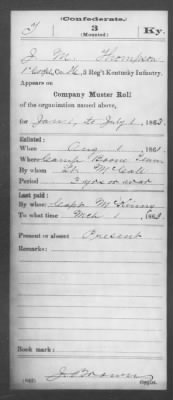 (Confederate.)
T 3 Ky.
(Mounted)
J. M. Thompson
1" Corpl, Co. H, 3 Reg't Kentucky Infantry.
Appears on
Company Muster Roll
of the organization named above,
for Jan 1, to July 1, 1863.
Enlisted:
When Aug 1, 1861
Where Camp Boone Tenn
By whom Lt. McCall
Period 3 yrs or war
Last paid:
By whom Capt McKinny
To what time Mch 1, 1863
Present or absent Present
Remarks:
Book mark:
J. Brown
(642) Copyist.